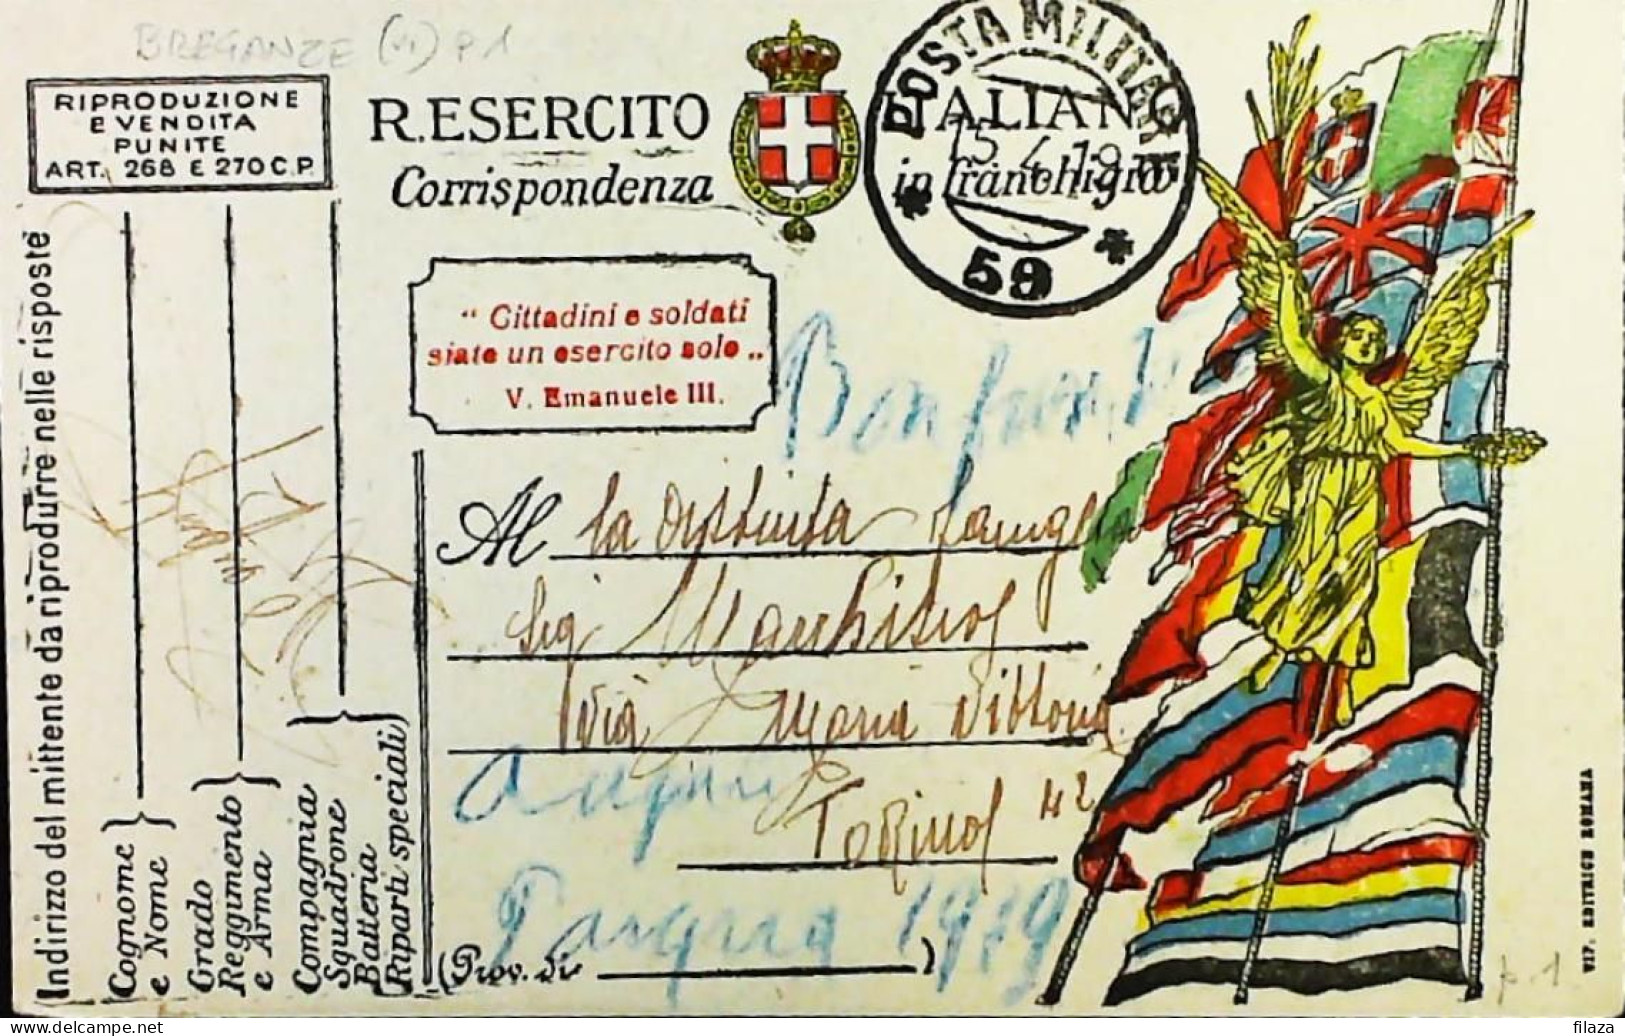 BREGANZE (VI) P1
RIPRODUZIONE
E VENDITA
PUNITE
ART. 268 E 270 C.P.
R. ESERCITO ITALIANO
Corrispondenza in franchigia
POSTA MILITARE
15.4.19
* 59 *
" Cittadini e soldati
siate un esercito solo „
V. Emanuele III.
Al la distinta famiglia
Sig Marchisio
Via Maria Vittoria
Torino 42
Auguri
Pasqua 1919
(Prov. di )
Indirizzo del mittente da riprodurre nelle risposte
Cognome
e Nome
Grado
Reggimento
e Arma
Compagnia
Squadrone
Batteria
Riparti speciali
TIP. EDITRICE ROMANA
p. 1
filaza